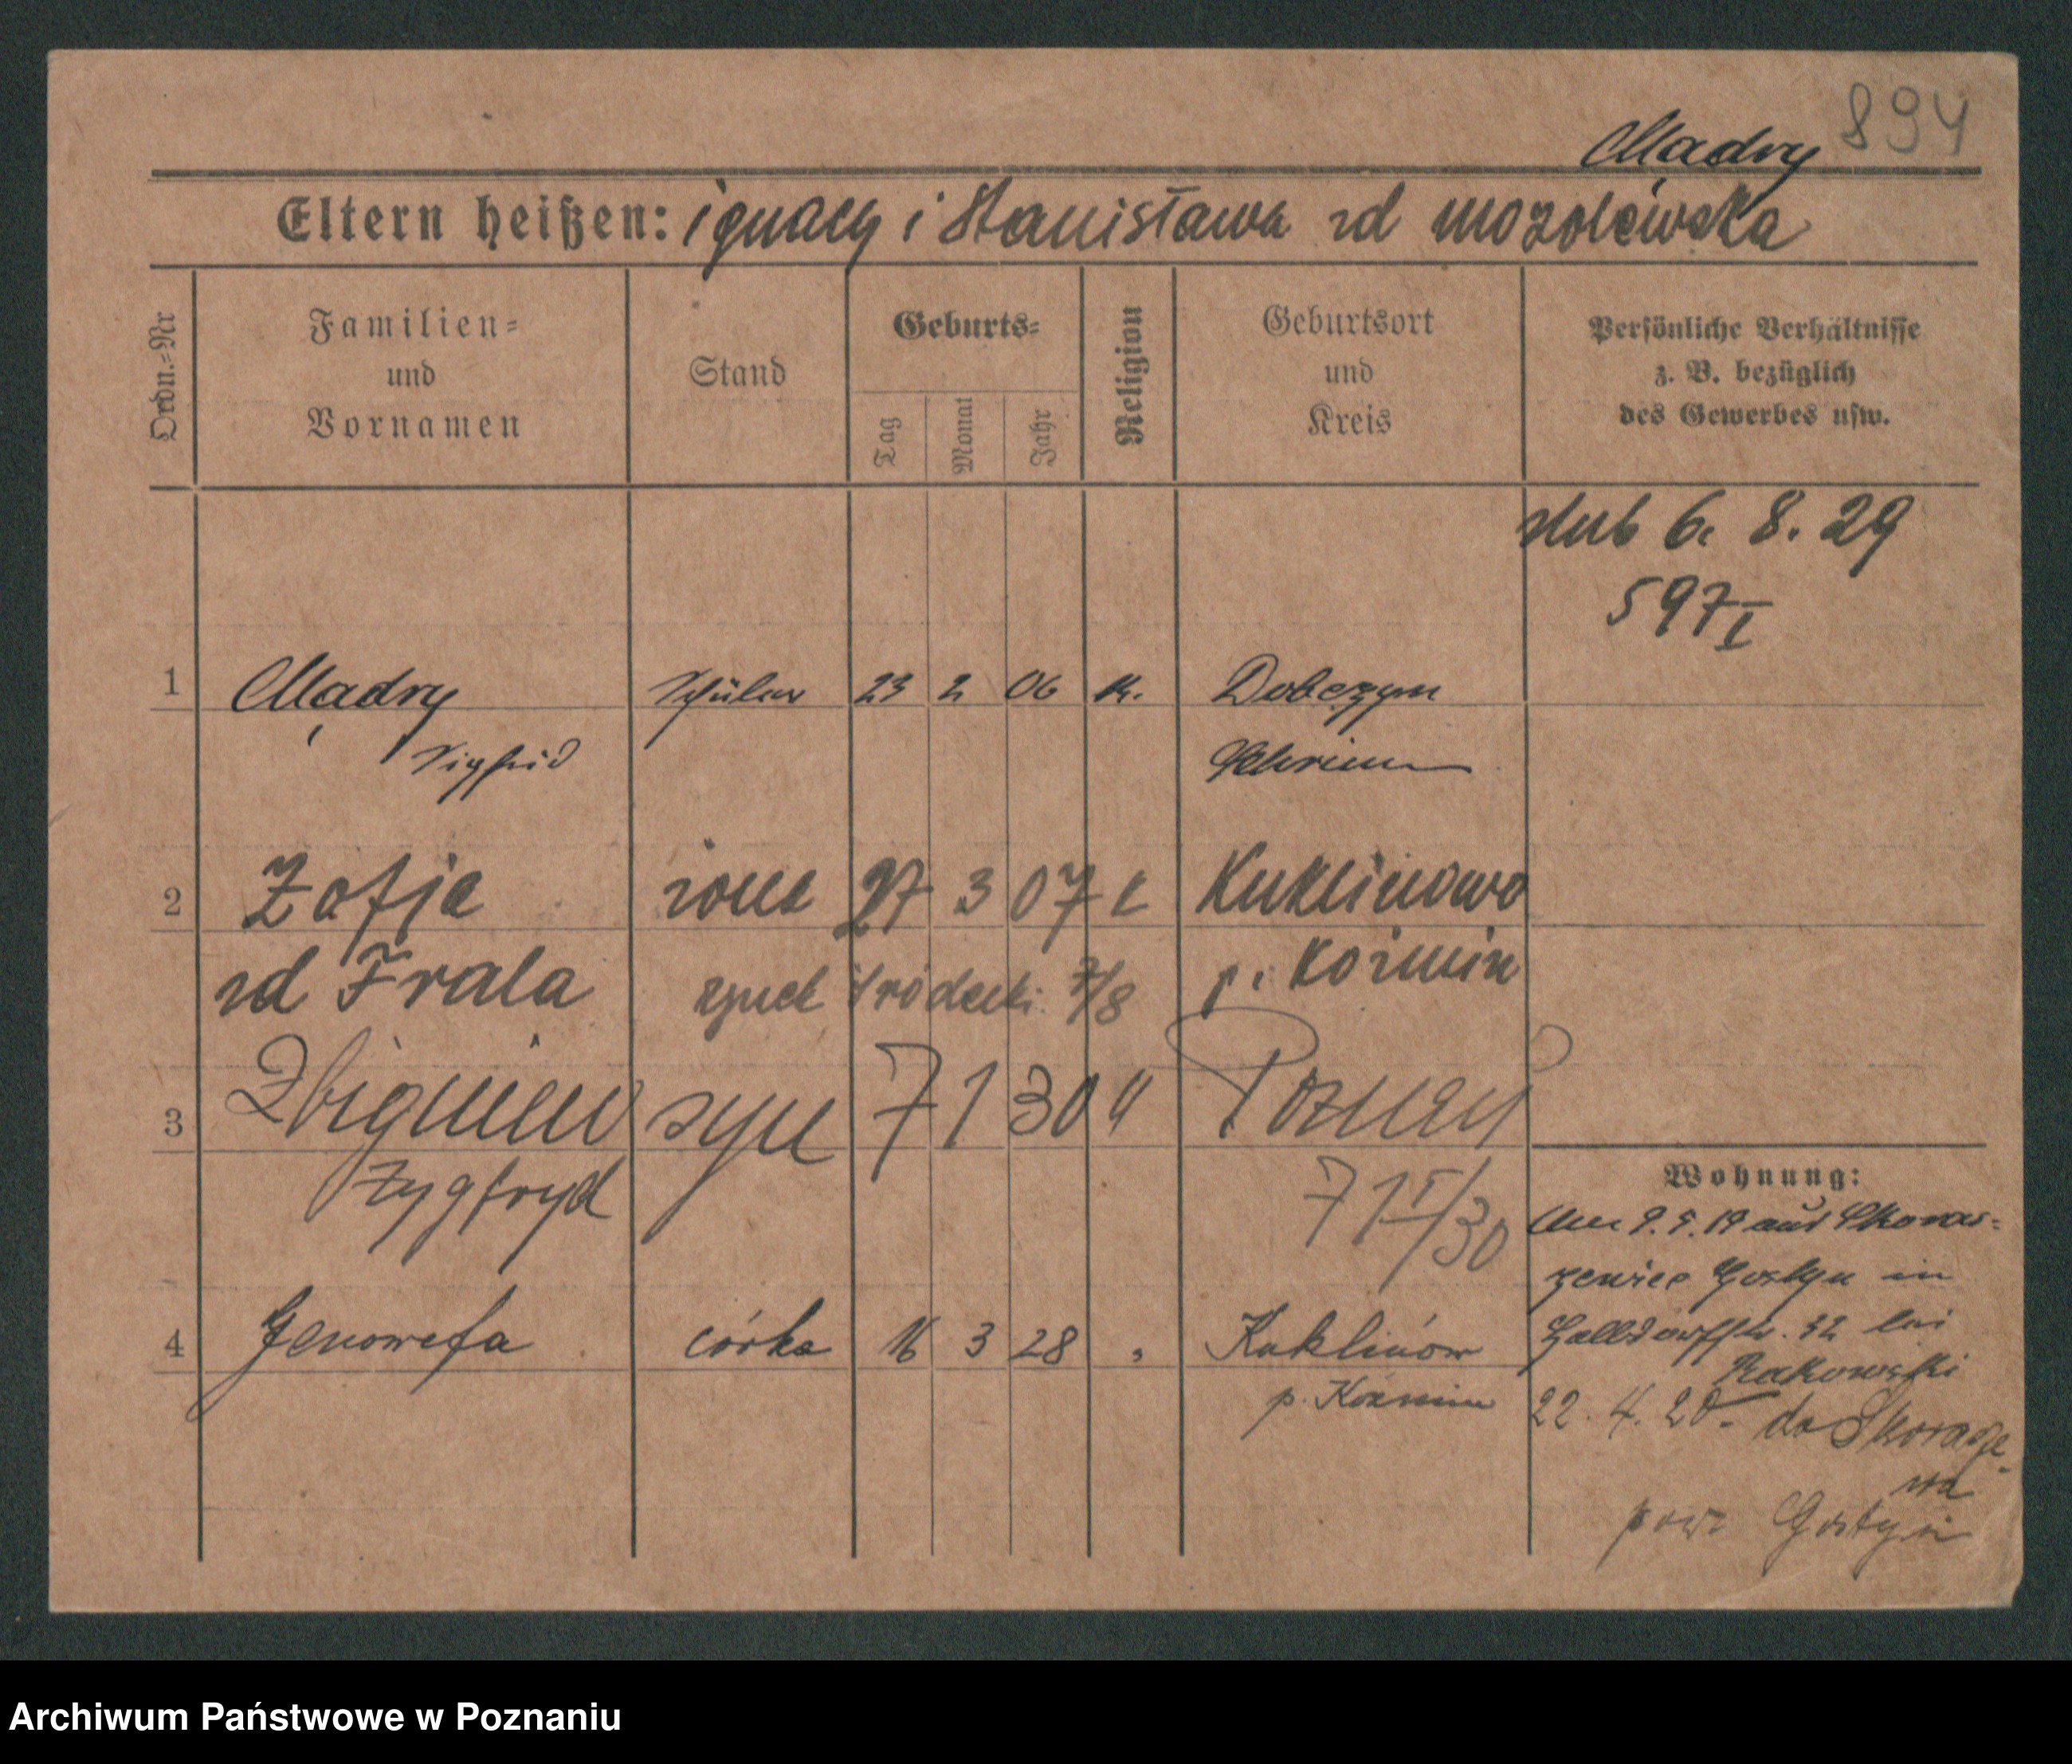 Mądry 894
Eltern heißen: ignacy i Stanisława zd mozolewska
Ordn.=Nr
Familien=
und
Vornamen
Stand
Geburts=
Tag
Monat
Jahr
Religion
Geburtsort
und
Kreis
Persönliche Verhältnisse
z. B. bezüglich
des Gewerbes usw.
slub 6. 8. 29
597 I
1 Mądry Schüler 23 2 06 k. Dobczyn
Sigfrid Schrimm
2 Zofja żona 27 3 07 k Kuklinowo
zd Frala p. Koźmin
7/8
3 Zbigniew syn 7 1 30 " Poznań
Zygfryd 71 I/30
Wohnung:
Am 9. 5. 19 aus Skoras=
zewice Gostyn in
32 bei
Rakowski
4 Genowefa córka 16 3 28 " Kuklinów
p. Koźmin
22. 4. 20. do Skorasze-
wic
pow Gostyń
Archiwum Państwowe w Poznaniu